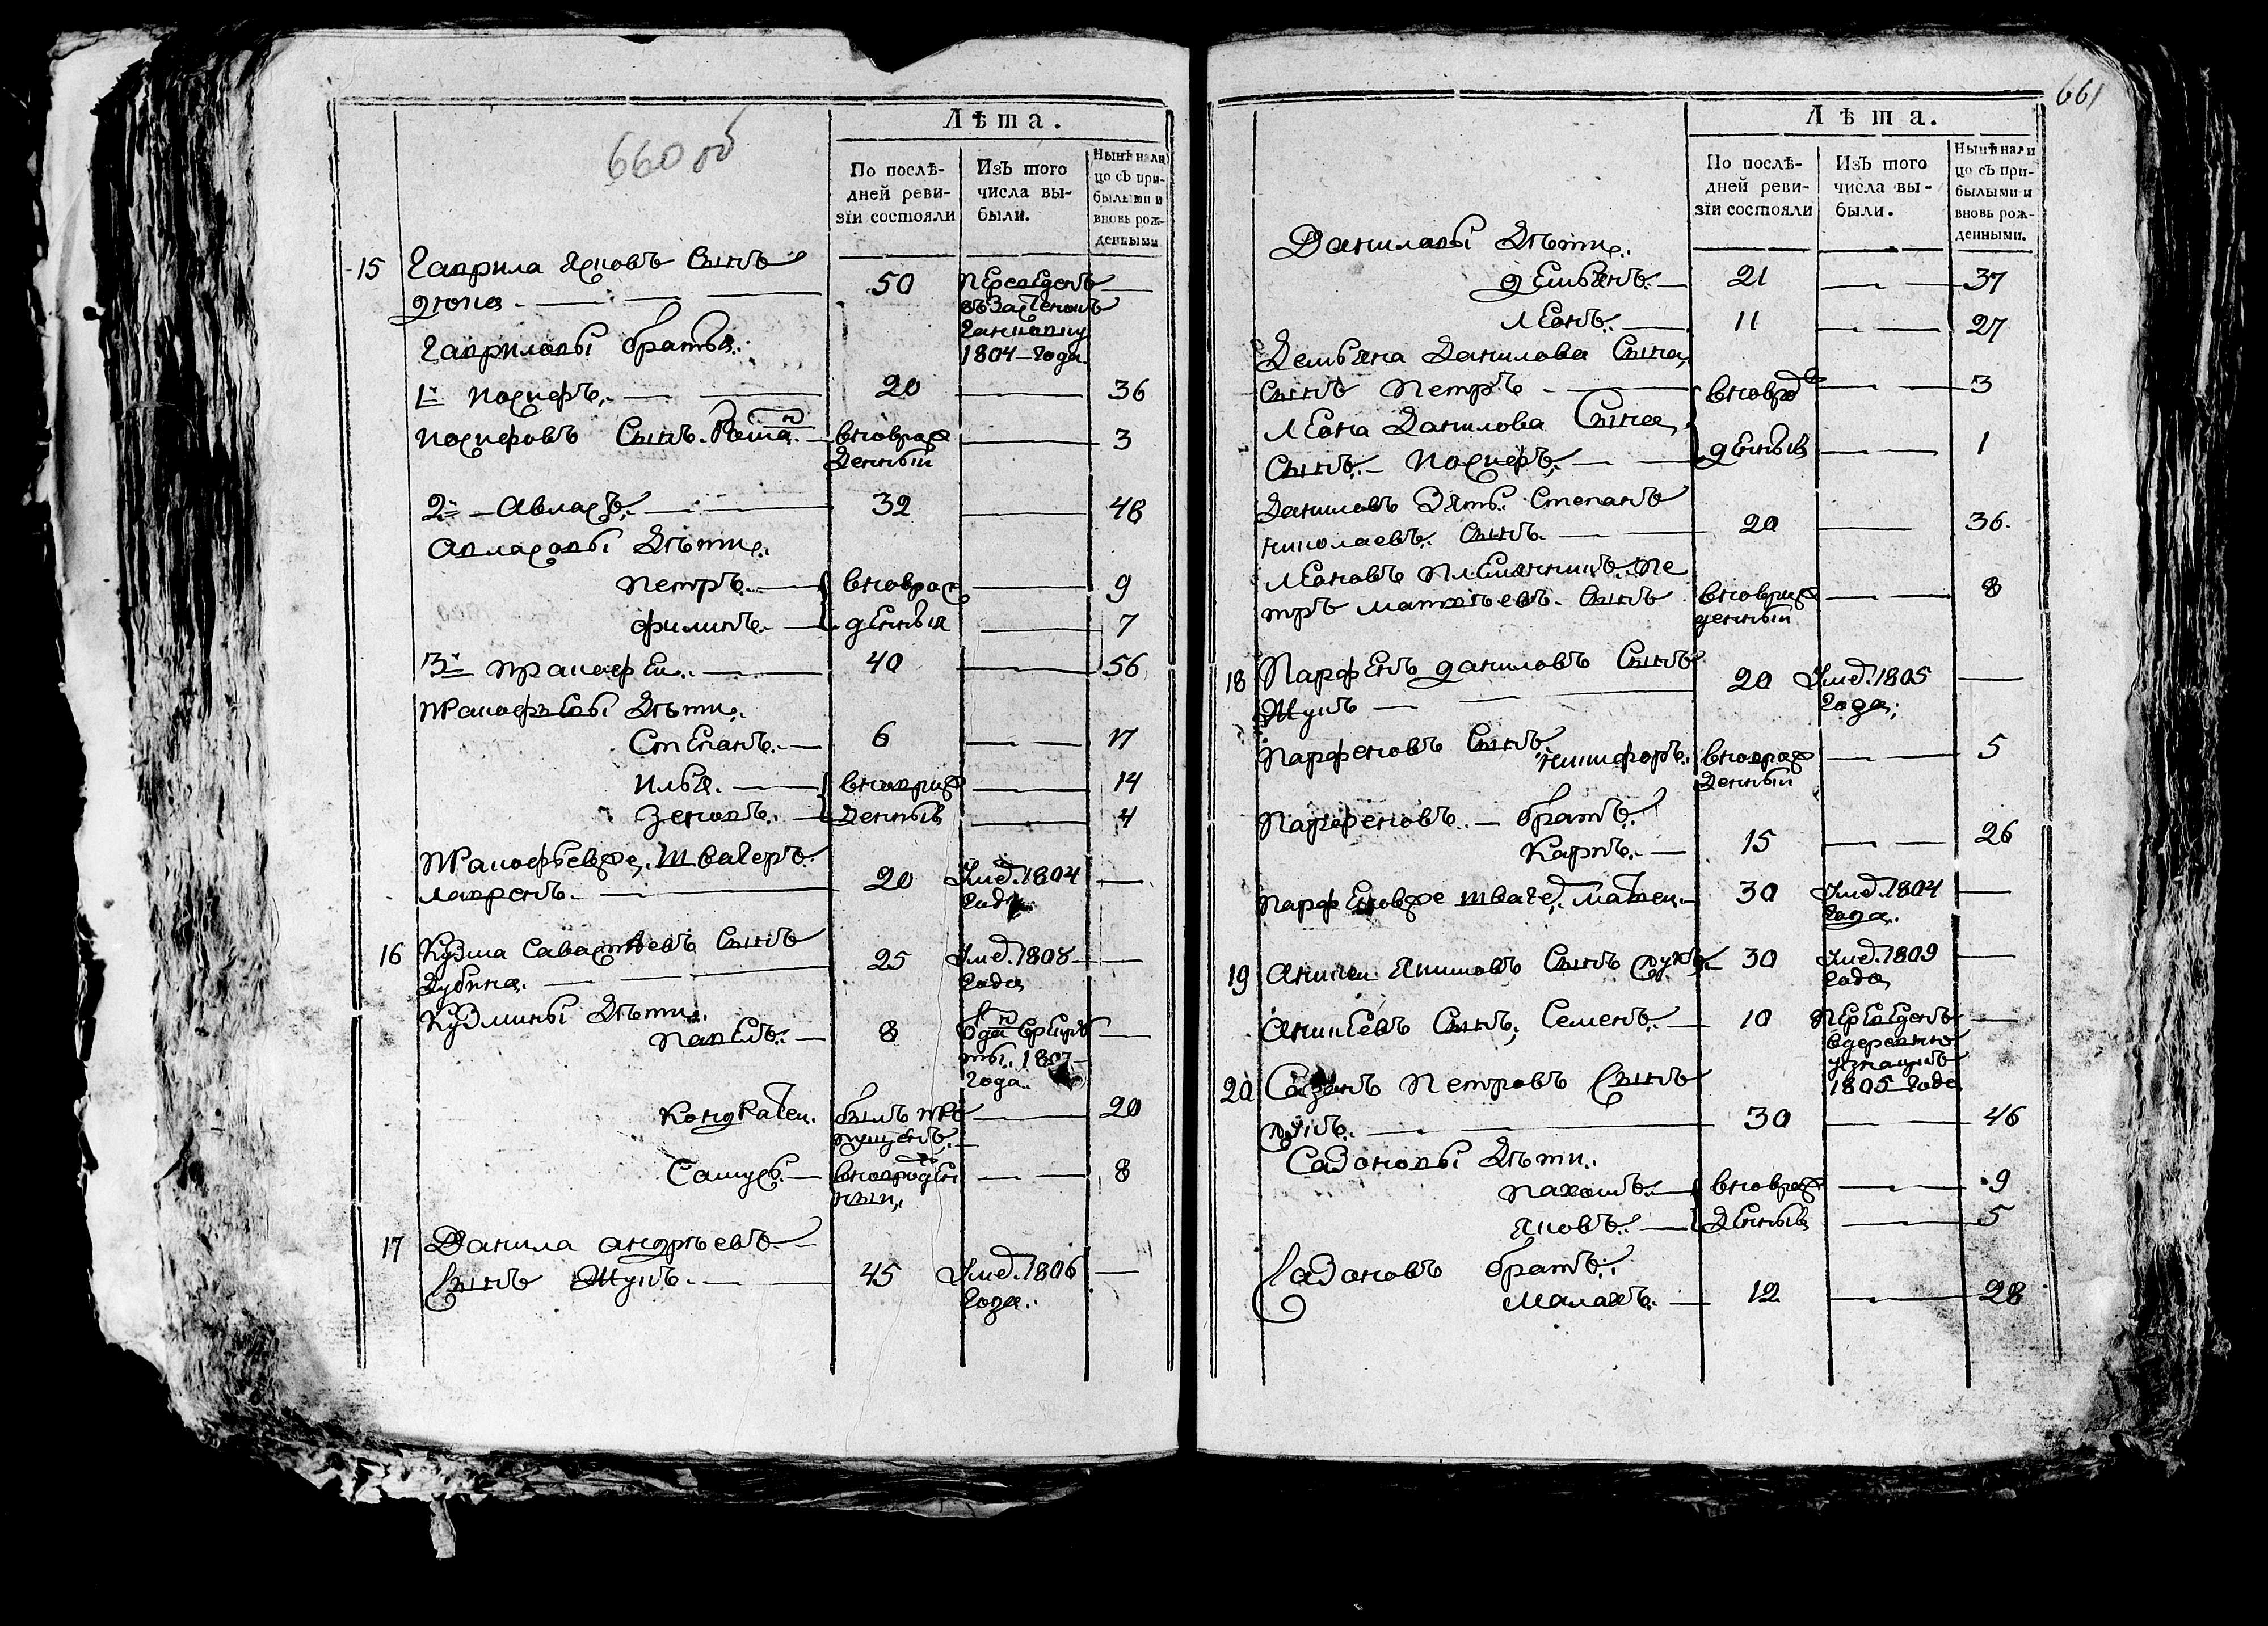 660 об
Лѣта.
По послѣ-
дней реви-
зіи состояли
Изъ того
числа вы-
были.
Нынѣ нали
цо съ при-
былыми и
вновь рож-
денными.
15 Гаврила Яковъ Сынъ
50 переведенъ
Гавриловы братья.
1804 года
1й иосифъ. 20 36
иосифовъ Сынъ. вноврож 3
денный
2й Авласъ. 32 48
Авласовы Дѣти.
Петръ. вноврож 9
филипъ. денныя 7
3й 40 56
Дѣти.
Степанъ. 6 17
Илья. вноврож 14
Зеновъ. денныя 4
швагеръ.
лавренъ. 20 Умр. 1804
года
16 Кузма Савастѣевъ Сынъ 25 Умр. 1808
Дубина. года
Кузмины Дѣти.
Павелъ. 8 1807
года.
Кондратеи. былъ про 20
пущенъ.
Самусь. вноврожден 8
ныи.
17 Данила андрѣевъ
Сынъ Жукъ. 45 Умр. 1806
года.
661
Лѣта.
По послѣ-
дней реви-
зіи состояли
Изъ того
числа вы-
были.
Нынѣ нали
цо съ при-
былыми и
вновь рож-
денными.
Даниловы Дѣти.
демьянъ. 21 37
Леонъ. 11 27
Демьяна Данилова Сына,
Сынъ Петръ вновро 3
Леона Данилова Сына,
Сынъ. Иосифъ. денныя 1
Даниловъ Зять. Степанъ
николаевъ. Сынъ. 20 36.
Леоновъ племянникъ. Пе
тръ матвѣевъ. Сынъ вноврож 8
денный
18 Парфенъ даниловъ Сынъ 20 Умр. 1805
Жукъ года.
Парфеновъ Сынъ.
никифоръ. вноврож 5
денный
Парфеновъ. братъ.
Карпъ. 15 26
Парфеновъ же шваге. Матвеи. 30 Умр. 1804
года.
19 Аникеи Якимовъ Сынъ 30 Умр. 1809
года
Аникеевъ Сынъ, Семенъ. 10 переведенъ
вдеревню
1805 года
20 Сазонъ Петровъ Сынъ
30 46
Сазоновы Дѣти.
Пахомъ. вноврож 9
Яковъ. денныя 5
Сазоновъ братъ.
Малахъ. 12 28